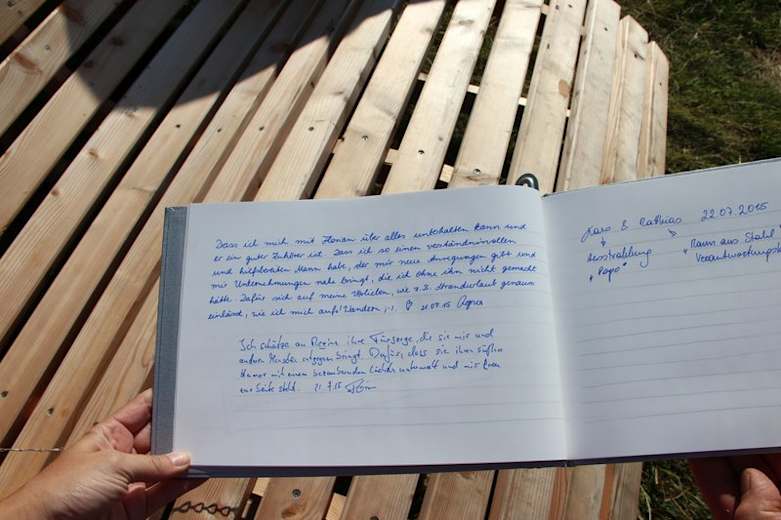 Dass ich mich mit Florian über alles unterhalten kann und
er ein guter Zuhörer ist. Dass ich so einen verständnisvollen
und hilfsbereiten Mann habe, der mir neue Anregungen gibt und
mir Unternehmungen nahe bringt, die ich ohne ihn nicht gemacht
hätte. Dafür sich auf meine Vorlieben, wie z.B. Strandurlaub genauso
einlässt, wie ich mich aufs Wandern, 21.07.15
Ich schätze an Regina ihre Fürsorge, die sie mir und
andren Menschen entgegen bringt. Dafür, dass sie ihren süßen
Humor mit einem bezaubernden Lächeln untermalt und mir
zur Seite steht. 21.7.15
& Mathias 22.07.2015
Ausstrahlung
"Papa"
"Mann aus Stahl"